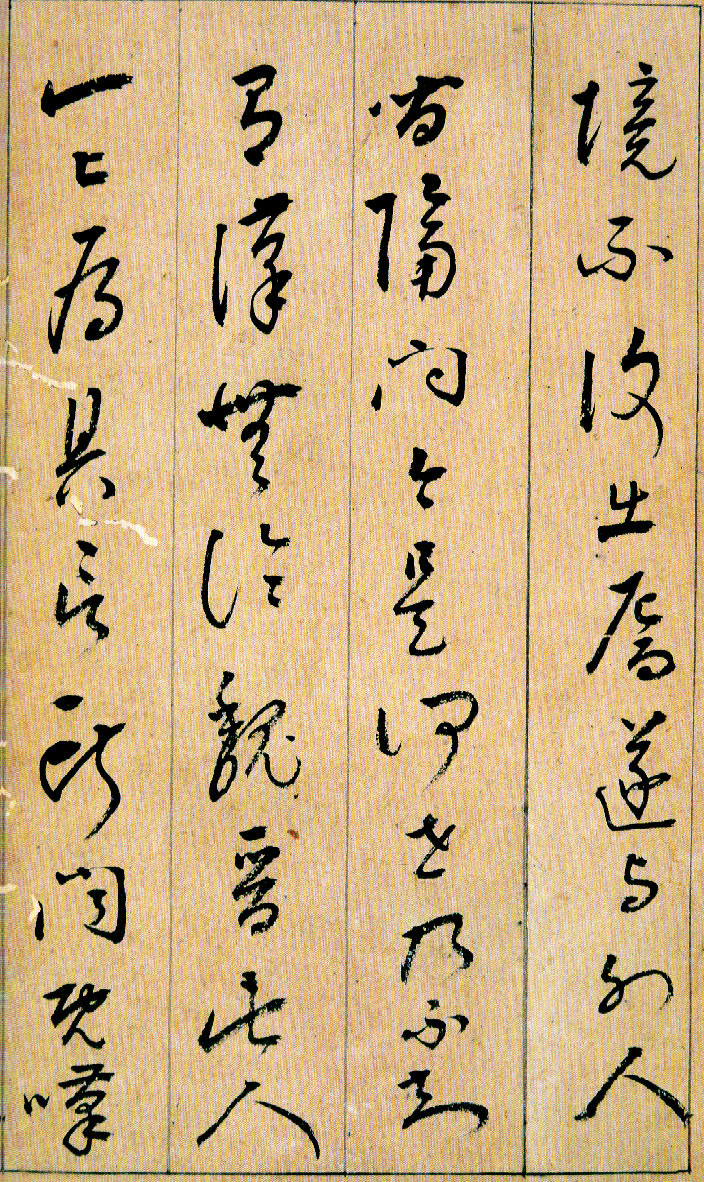 境不復出焉遂与外人
間隔問今是何世乃不知
有漢無論魏晉此人
一一為具言所聞既嘆